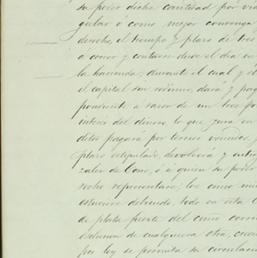 su poder dicha cantidad por via
gular o como mejor convenga
derecho, el tiempo y plazo de tres
a correr y contarse desde el dia en
la hacienda; durante el cual y
el capital son mismo, dará y pag
pondiente a razon de un tres por
interes del dinero lo que
ditos pagará por tercios vencidos, y
plazo estipulado, devolverá y entreg
zalez de Cono, o a quien su poder
recho representare, los cinco mil
estuviere debiendo, todo en esta C
de plata fuerte del cuño corrien
esclusion de cualquiera otra, cuan
por ley se permita su circulacion